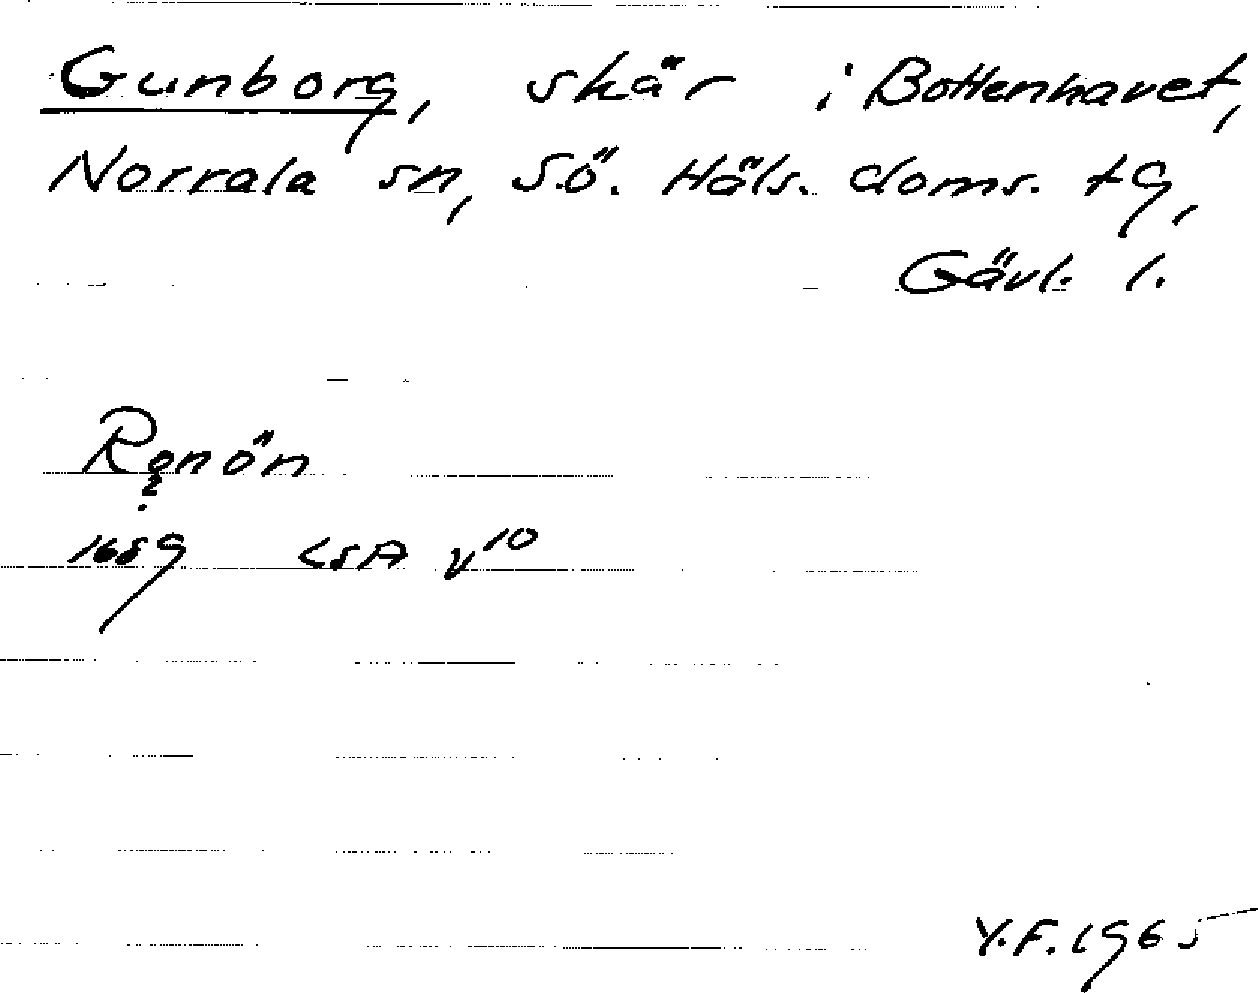 Gunborg, skär i Bottenhavet,
Norrala sn, S.Ö. Häls. doms. tg,
Gävl. l.
Renön
?
1689 LSA V10
Y.F. 1965